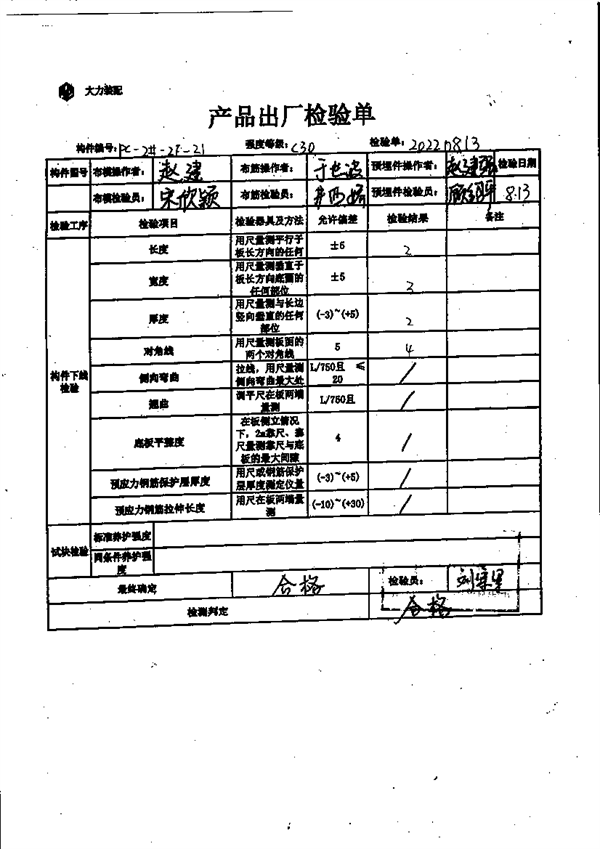 大力装配
产品出厂检验单
构件编号:PC-2#-2F-21 强度等级:C30 检验单:20220813
构件图号 布模操作者: 赵建 布筋操作者: 预埋件操作者: 赵建强 检验日期
布模检验员: 宋欣颖 布筋检验员: 预埋件检验员: 8.13
检验工序 检验项目 检验器具及方法 允许偏差 检验结果 备注
构件下线检验
长度 用尺量测平行于板长方向的任何 ±5 2
宽度 用尺量测垂直于板长方向底面的任何部位 ±5 3
厚度 用尺量测与长边竖向垂直的任何部位 (-3)~(+5) 2
对角线 用尺量测板面的两个对角线 5 4
侧向弯曲 拉线,用尺量测侧向弯曲最大处 L/750且 ≤20 /
翘曲 调平尺在板两端量测 L/750且 /
底板平整度 在板侧立情况下,2m靠尺、塞尺量测靠尺与底板的最大间隙 4 /
预应力钢筋保护层厚度 用尺或钢筋保护层厚度测定仪量 (-3)~(+5) /
预应力钢筋拉伸长度 用尺在板两端量测 (-10)~(+30) /
试块检验 标准养护强度
同条件养护强度
最终确定 合格 检验员:
检测判定 合格